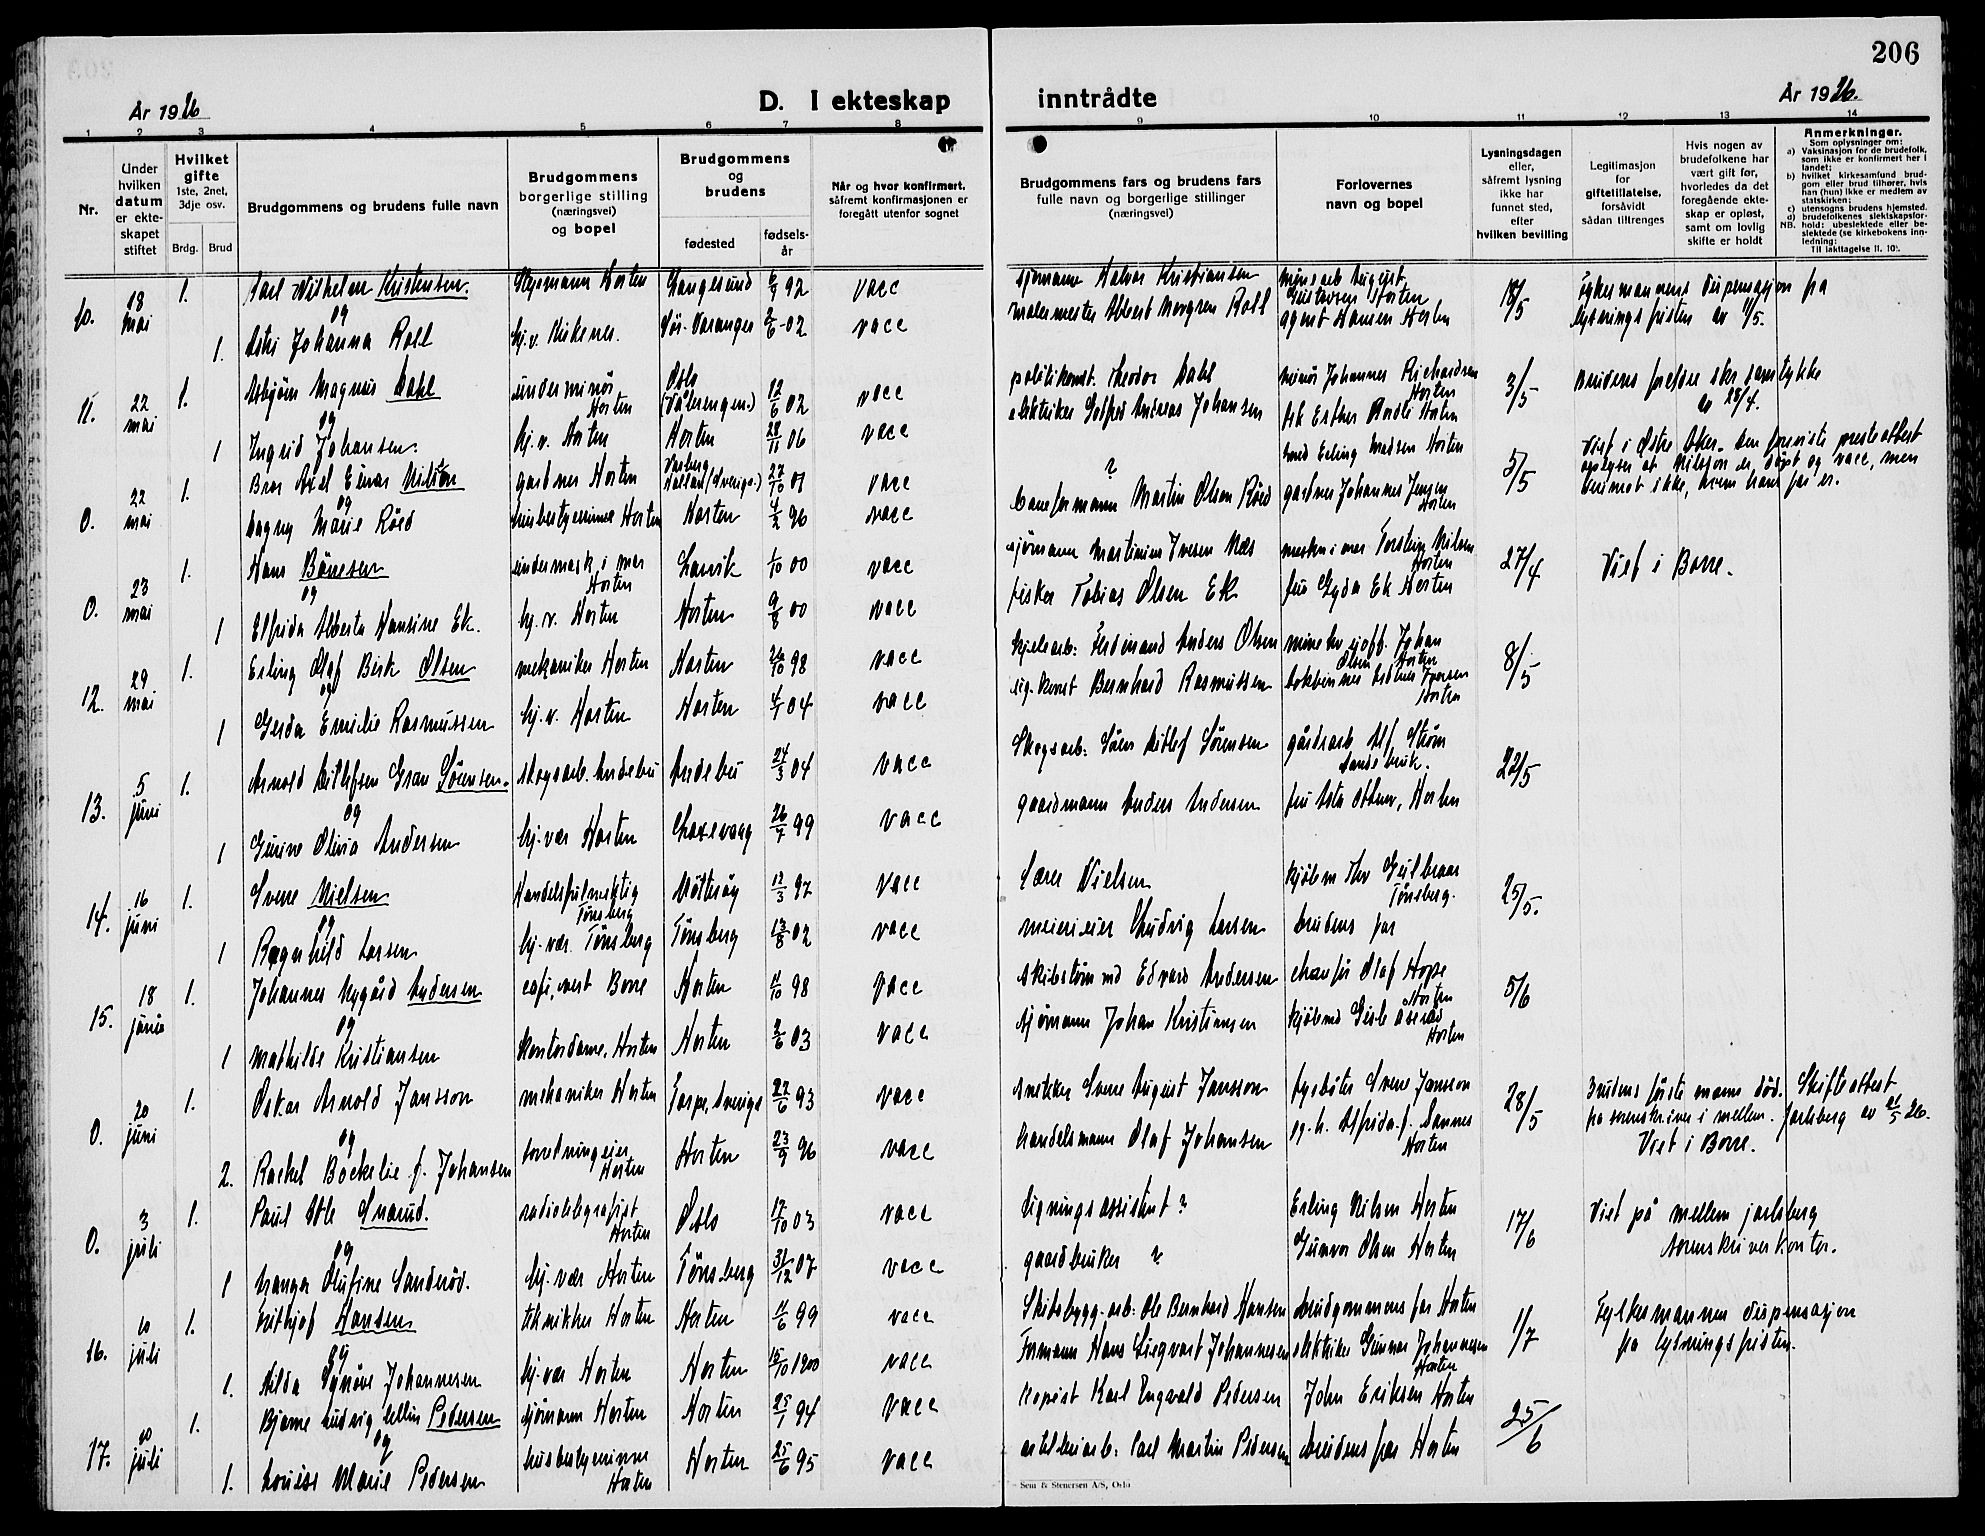 206
År 1926
D. I ekteskap inntrådte
År 1926.
1 2 3 4 5 6 7 8 9 10 11 12 13 14
Nr.
Under hvilken datum er ekteskapet stiftet
Hvilket gifte
1ste, 2net, 3dje osv.
Brdg. Brud
Brudgommens og brudens fulle navn
Brudgommens borgerlige stilling (næringsvei) og bopel
Brudgommens og brudens
fødested
fødselsår
Når og hvor konfirmert, såfremt konfirmasjonen er foregått utenfor sognet
Brudgommens fars og brudens fars fulle navn og borgerlige stillinger (næringsvei)
Forlovernes navn og bopel
Lysningsdagen eller, såfremt lysning ikke har funnet sted, efter hvilken bevilling
Legitimasjon for giftetillatelse, forsåvidt sådan tiltrenges
Hvis nogen av brudefolkene har vært gift før, hvorledes da det foregående ekteskap er opløst, samt om lovlig skifte er holdt
Anmerkninger.
Som oplysninger om:
a) Vaksinasjon for de brudefolk, som ikke er konfirmert her i landet;
b) hvilket kirkesamfund brudgom eller brud tilhører, hvis han (hun) ikke er medlem av statskirken;
c) utensogns brudens hjemsted.
d) brudefolkenes slektskapsforhold: ubeslektede eller beslektede (se kirkebokens innledning:
NB. Til iakttagelse II, 10).
10. 18 mai 1. Karl Wilhelm Kristensen. Horten Langesund 6/9 92 vacc sjømann Halvor Kristiansen August Gustavsen Horten 18/5 Fykesmannens dispensasjon fra
og
1. Johanna Roll hj.v. Kirkenes. Sør-Varanger 2/6-02 vacc malermester Albert Norgren Roll agent Hansen Horten lysningsfristen av 11/5.
11. 22 mai 1. Asbjørn Magnus Dahl underminør Horten Oslo (Vålerengen.) 12/6 02 vacc politikonst. Theodor Dahl minør Johannes Richardsen Horten 3/5 Brudens foreldre skr. samtykke av 28/4.
og
1 Ingrid Johansen. hj.v. Horten Horten 28/11 06 vacc elektriker Gotfred Andreas Johansen frk Esther Horten
0. 22 mai 1. Axel Einar Nilson gartner Horten Varberg Halland (Sverige.) 27/10 01 vacc ? smed Erling Madsen Horten 5/5 Viet i Østre Aker. Den foreviste presteattest
og
Dagny Marie Röed husbestyrerinne Horten Horten 4/2 96 vacc baneformann Martin Olsen Röed gartner Johannes Jensen Horten oplyser at Nilsson er døpt og vacc, men derimot ikke, hvem hans far er.
0. 23 mai 1. Hans Börresen undermask. i mar Horten Larvik 1/10 00 vacc sjømann Martinius Iversen Næs mask. i mar Torstein Nilsen Horten 27/4 Viet i Borre.
og
1 Elfrida Alberta Hansine Ek. hj.v. Horten Horten 9/8 00 vacc fisker Tobias Olsen Ek fru Gyda Ek Horten
12. 29 mai 1. Erling Olaf Berk Olsen mekaniker Horten Horten 26/10 98 vacc kjelearb: Ferdinand Anders Olsen Johan Olsen Horten 8/5
og
1 Gerda Emilie Rasmussen hj.v. Horten Horten 4/1 04 vacc sig. konst Bernhard Rasmussen bokbinner Iversen Horten
13. 5 juni 1. Arnold Ditlefsen Gran Sörensen. skogsarb. Andebu Andebu 24/3 04 vacc Skogsarb: Sören Ditlef Sörensen gårdsarb. Alf Ström 22/5
og
1 Gurine Olivia Andersen hj.vær Horten 26/4 99 vacc gaardmann Anders Andersen fru Asta Horten
14. 16 juni 1. Sverre Nielsen Handelsfulmektig Tönsberg Nötteröy 12/3 97 vacc Lærer Nielsen kjöbm. Thv Gulbraar Tönsberg. 25/5.
og
1 Ragnhild Larsen hj.vær. Tönsberg Tönsberg 13/8 02 vacc meierieier Ludvig Larsen brudens far
15. 18 juni 1. Johannes Nygård Andersen Borre Horten 11/10 98 vacc skibstømmerm. Edvard Andersen chauför Olaf Hope Horten 5/6
og
1 Mathilde Kristiansen kontordame. Horten Horten 2/6 03 vacc sjømann Johan Kristiansen kjöbmd Gisle Horten
0. 20 juni 1. Oskar Arnold Jansson mekaniker Horten Sverige 22/6 93 vacc snekker Sven August Jansson Svend Jansson 28/5 Brudens første mann død. Skifteattest
og
2. Rachel Böckelie f. Johansen forretningseier Horten Horten 23/9 96 vacc handelsmann Olaf Johansen Alfrida f. Sannes Horten fra sorenskriveren i mellem. Jarlsberg av 21/5 26. Viet i Borre.
0. 3 juli 1. Paul Atle Snarud. radiotelegrafist Horten Oslo 17/10 03 vacc ligningsassistent ? Erling Nilsen Horten 17/6 Viet på mellem jarlsberg
og
1 Olufine Sanderöd. hj.vær Horten Tönsberg 31/12 07 vacc gaardbruker ? Gunvor Olsen Horten sorenskriverkontor.
16. 10 juli 1. Frithjof Hansen tekniker Horten Horten 11/6 99 vacc Skibsbygg.arb. Ole Bernhard Hansen brudgommens far Horten 1/7 Fylkesmannens dispensasjon
og
1. Alda Synöve Johannesen hj.vær Horten Horten 15/10 1900 vacc Formann Hans Sigvart Johannesen elektriker Gunnar Johannesen Horten fra lysningsfristen.
17. 10 juli 1. Bjarne Ludvig Pedersen sjømann Horten Horten 25/1 94 vacc kopist Karl Ingvald Pedersen John Eriksen Horten 25/6
og
1. Louise Marie Pedersen husbestyrerinne Horten Horten 25/6 95 vacc artilleriarb: Carl Martin Pedersen brudens far Horten
Sem & Stenersen A/S, Oslo